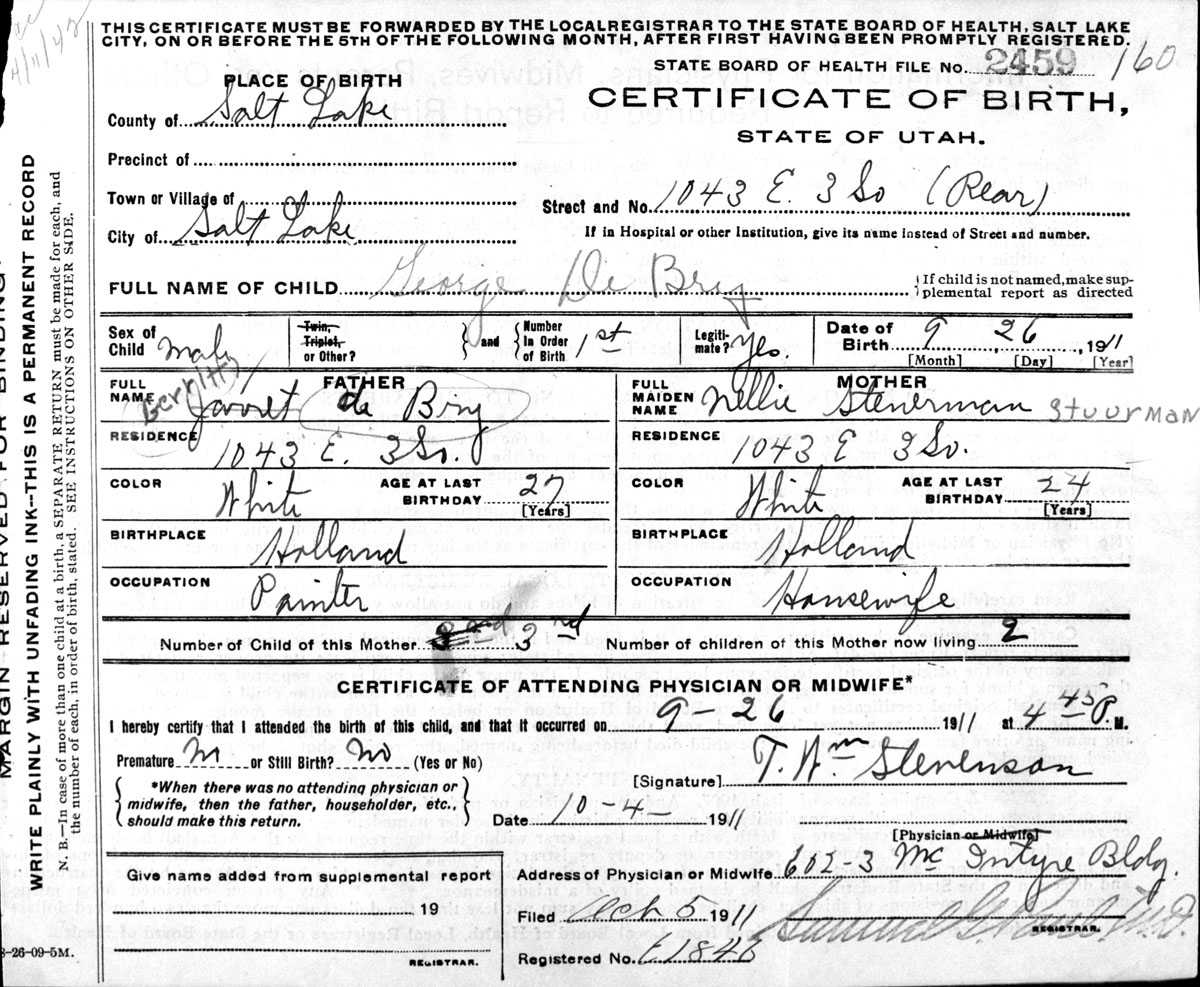 4/11/42
THIS CERTIFICATE MUST BE FORWARDED BY THE LOCAL REGISTRAR TO THE STATE BOARD OF HEALTH, SALT LAKE
CITY, ON OR BEFORE THE 5TH OF THE FOLLOWING MONTH, AFTER FIRST HAVING BEEN PROMPTLY REGISTERED.
STATE BOARD OF HEALTH FILE No. 2459 160.
PLACE OF BIRTH
CERTIFICATE OF BIRTH,
STATE OF UTAH.
County of Salt Lake
Precinct of
Town or Village of
Street and No. 1043 E. 3 So (Rear)
City of Salt Lake
If in Hospital or other Institution, give its name instead of Street and number.
FULL NAME OF CHILD George De Bry
{If child is not named, make supplemental report as directed
Sex of Child Male
Twin, Triplet, or Other? } and { Number In Order of Birth 1st
Legitimate? Yes.
Date of Birth 9 26, 1911
[Month] [Day] [Year]
FATHER
FULL NAME Gerrit Jarret de Bry
RESIDENCE 1043 E. 3 So.
COLOR White AGE AT LAST BIRTHDAY 27 [Years]
BIRTHPLACE Holland
OCCUPATION Painter
MOTHER
FULL MAIDEN NAME Nellie Steuerman STUURMAN
RESIDENCE 1043 E 3 So.
COLOR White AGE AT LAST BIRTHDAY 24 [Years]
BIRTHPLACE Holland
OCCUPATION Housewife
Number of Child of this Mother 3nd
Number of children of this Mother now living 2
CERTIFICATE OF ATTENDING PHYSICIAN OR MIDWIFE*
I hereby certify that I attended the birth of this child, and that it occurred on 9 - 26 1911 at 4 45 P. M.
Premature or Still Birth? No (Yes or No)
[Signature] T. Wm Stevenson
{ *When there was no attending physician or midwife, then the father, householder, etc., should make this return. }
Date 10 - 4 - 1911
[Physician or Midwife]
Give name added from supplemental report
19
REGISTRAR.
Address of Physician or Midwife 602-3 McIntyre Bldg.
Filed Oct 5 1911
REGISTRAR.
Registered No. 1846
8-26-09-5M.
MARGIN RESERVED FOR BINDING.
WRITE PLAINLY WITH UNFADING INK--THIS IS A PERMANENT RECORD
N. B.—In case of more than one child at a birth, a SEPARATE RETURN must be made for each, and
the number of each, in order of birth, stated. SEE INSTRUCTIONS ON OTHER SIDE.